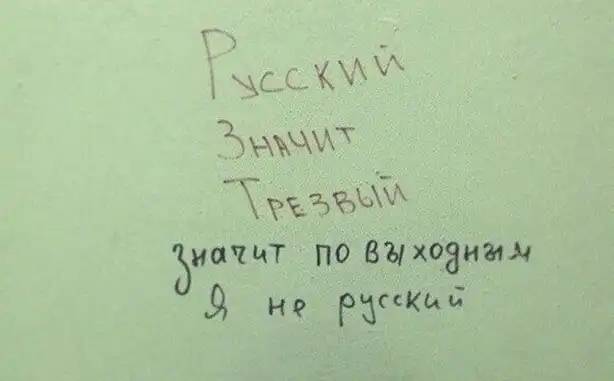 Русский
Значит
Трезвый
значит по выходным
я не русский